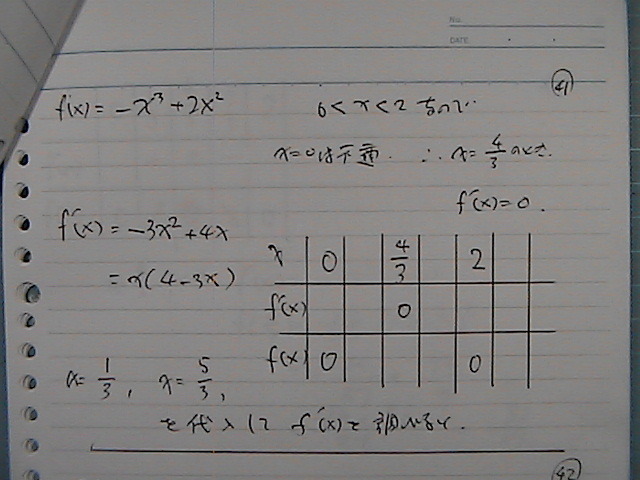 No.
DATE
41
f(x) = -x³ + 2x²
0 < x < 2 なので
x=0は不適. ∴ x= 4/3 のとき.
f'(x)=0.
f'(x) = -3x² + 4x
= x(4-3x)
x 0 4/3 2
f'(x) 0
f(x) 0 0
x= 1/3, x= 5/3,
を代入して f'(x)を調べると.
42